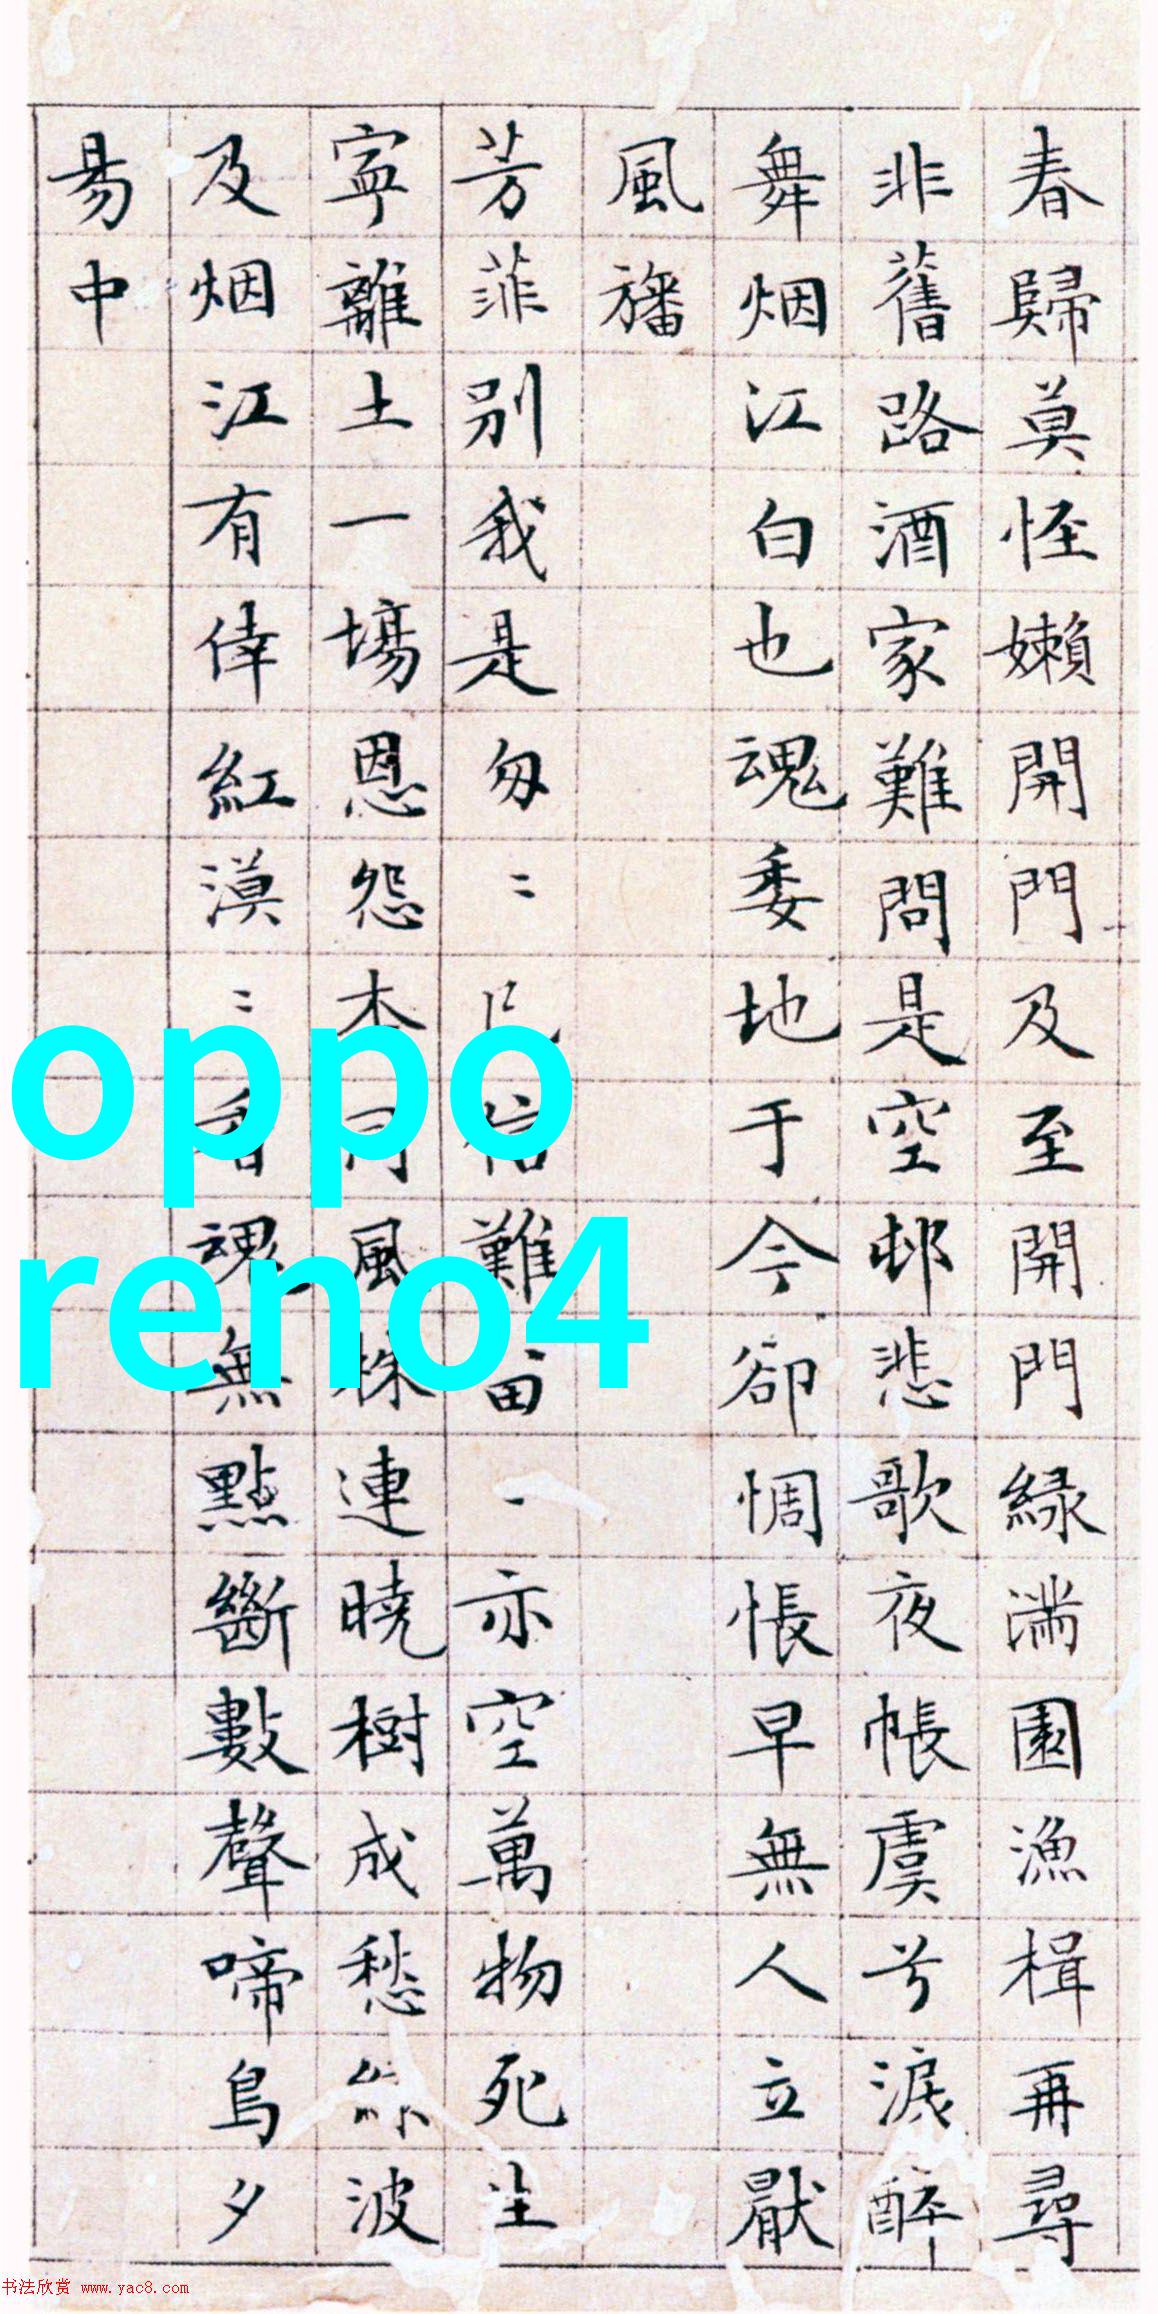 春歸莫怪嬾開門及至開門緑滿園漁楫再尋
非舊路酒家難問是空邨悲歌夜帳虞兮淚醉
舞烟江白也魂委地于今卻惆悵早無人立厭
風旛
芳菲別我是匆〻 信難留一亦空萬物死生
寧離土一場恩怨本同風株連曉樹成愁 波
及烟江有倖紅漠〻香魂無點斷數聲啼鳥夕
易中
oppo
reno4
书法欣赏 www.yac8.com